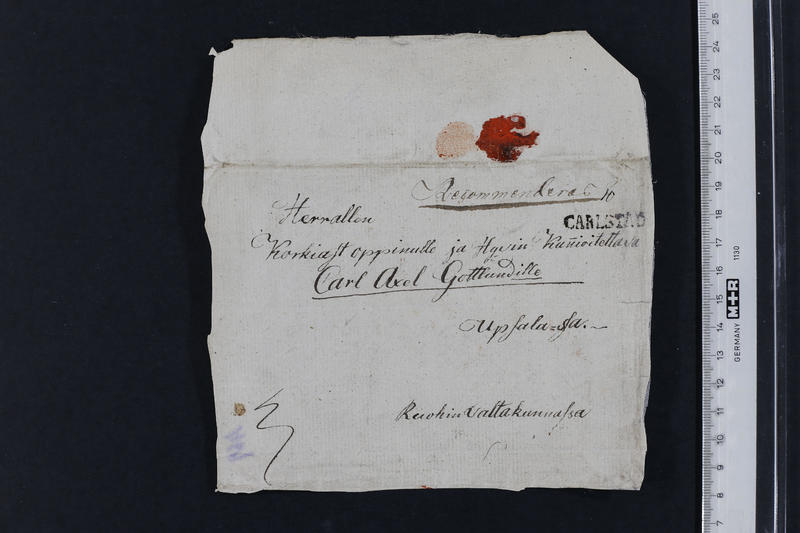 Recommenderas
10
Herrallen
CARLSTAD
Korkiast oppinulle ja Hyvin Kuñioitettava
Carl Axel Gottlundille
Upsala=sa.
Ruohin Valtakunnassa
25
24
23
22
21
20
19
18
17
16
15
14
13
12
11
10
9
8
7
GERMANY M+R 1130